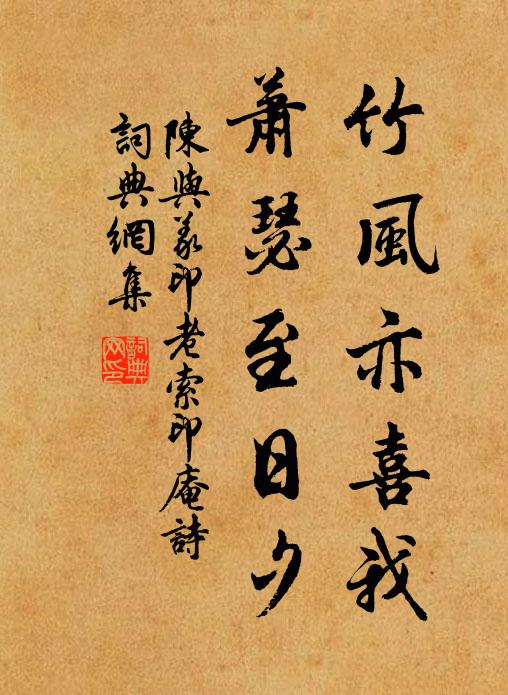 竹風亦喜我
蕭瑟至日夕
陳與義印老索印庵詩
詞典網集
詞典網印